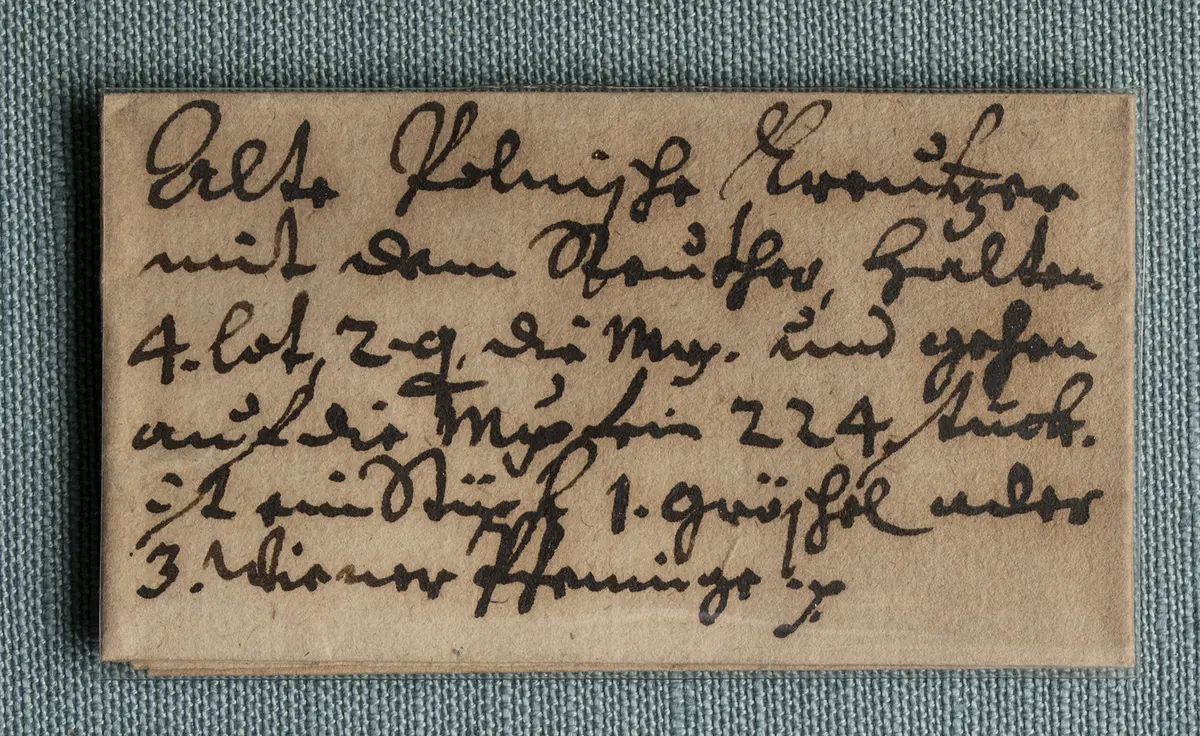 Alte Polnische Kreutzer
mit dem Reuther, halten
4. lot, 2 q, die Mg. und gehen
auf die Mg fein 224. stuck.
ist ein Stück 1. gröschel oder
3. Wiener Pfenninge